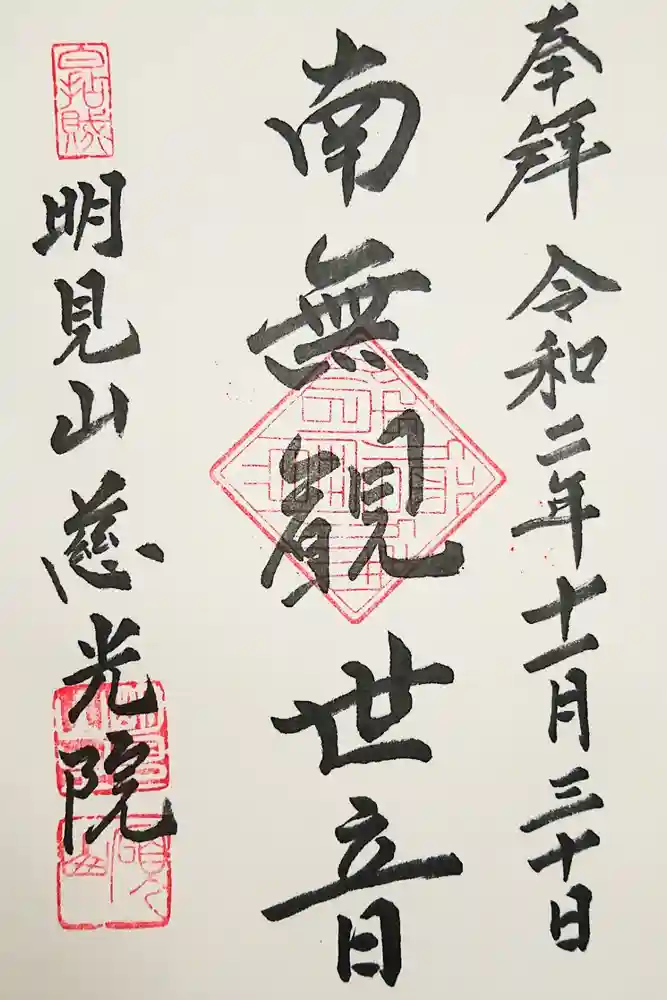 奉拜 令和二年十一月三十日
南無觀世音
明見山慈光院